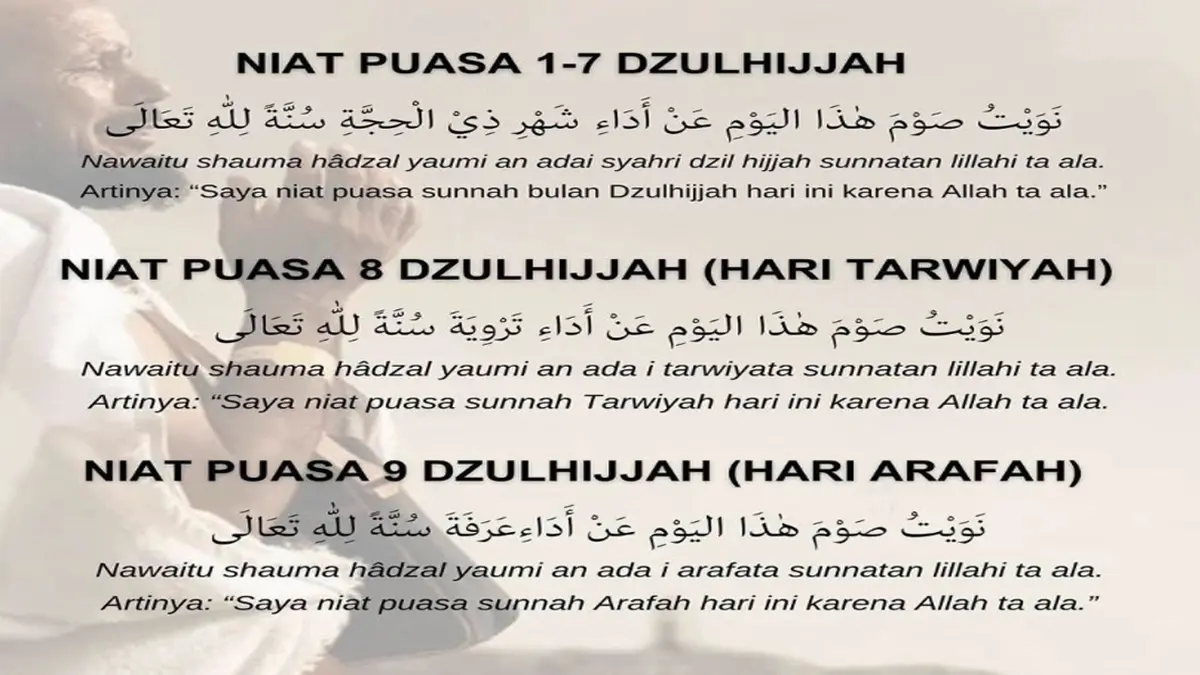 NIAT PUASA 1-7 DZULHIJJAH
نَوَيْتُ صَوْمَ هٰذَا اليَوْمِ عَنْ أَدَاءِ شَهْرِ ذِيْ الْحِجَّةِ سُنَّةً لِلّٰهِ تَعَالَى
Nawaitu shauma hâdzal yaumi an adai syahri dzil hijjah sunnatan lillahi ta ala.
Artinya: “Saya niat puasa sunnah bulan Dzulhijjah hari ini karena Allah ta ala.”
NIAT PUASA 8 DZULHIJJAH (HARI TARWIYAH)
نَوَيْتُ صَوْمَ هٰذَا اليَوْمِ عَنْ أَدَاءِ تَرْوِيَةَ سُنَّةً لِلّٰهِ تَعَالَى
Nawaitu shauma hâdzal yaumi an ada i tarwiyata sunnatan lillahi ta ala.
Artinya: “Saya niat puasa sunnah Tarwiyah hari ini karena Allah ta ala.
NIAT PUASA 9 DZULHIJJAH (HARI ARAFAH)
نَوَيْتُ صَوْمَ هٰذَا اليَوْمِ عَنْ أَدَاءِعَرَفَةَ سُنَّةً لِلّٰهِ تَعَالَى
Nawaitu shauma hâdzal yaumi an ada i arafata sunnatan lillahi ta ala.
Artinya: “Saya niat puasa sunnah Arafah hari ini karena Allah ta ala.”